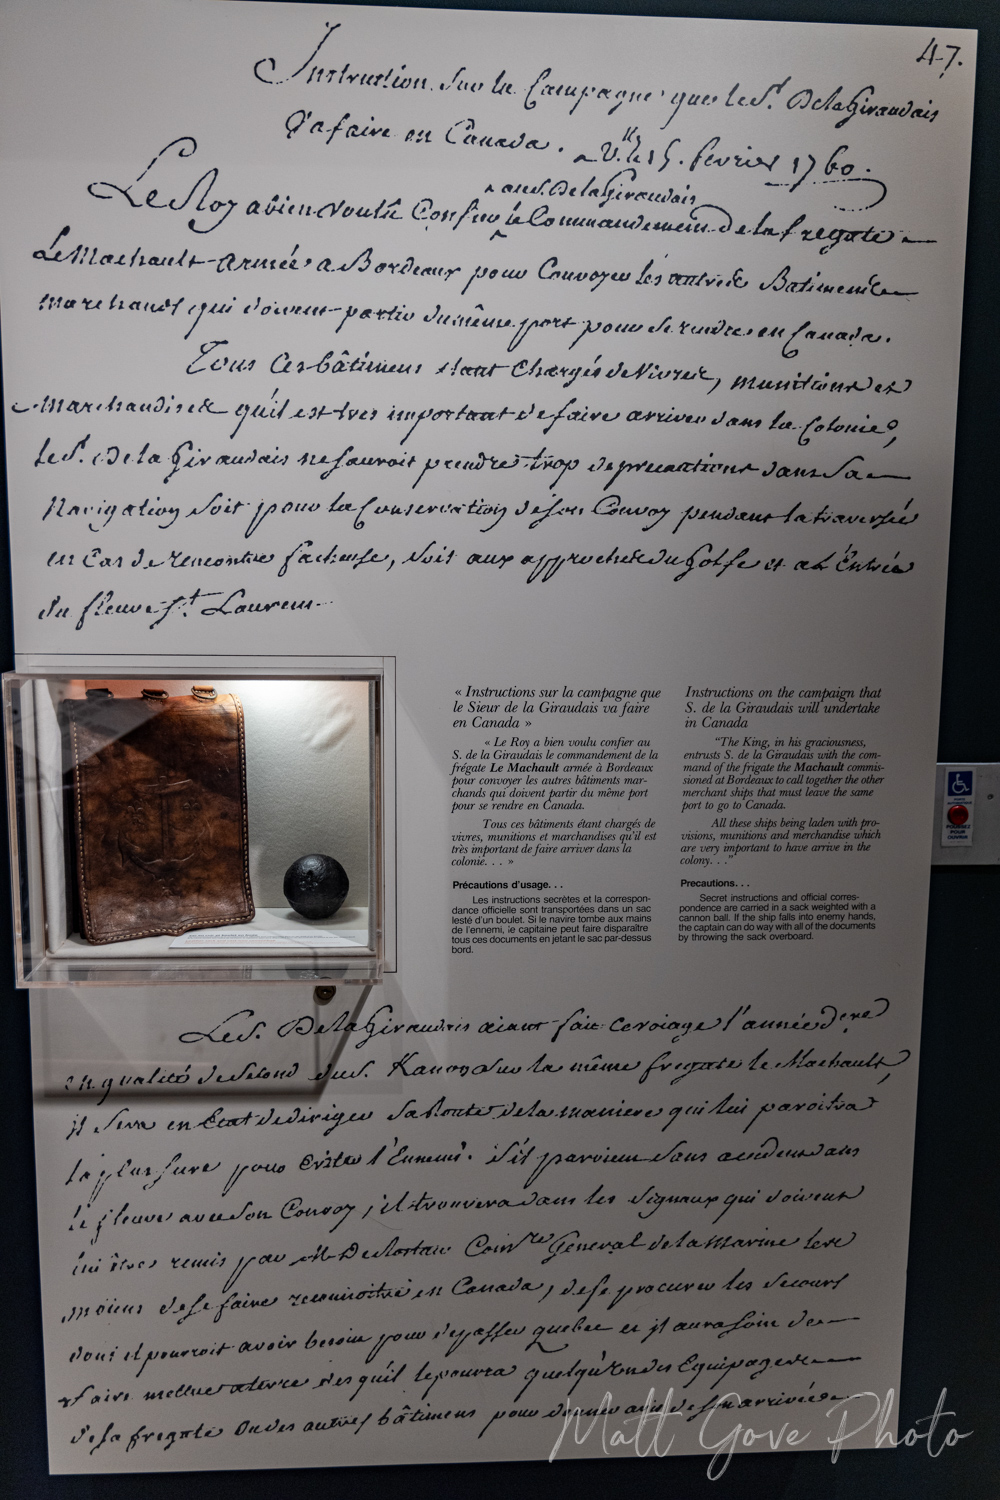 47.
Instruction sur la Campagne que le S.r De la Giraudais
Va faire en Canada. V.lles 15. fevrier 1760.
au S. De la Giraudais
Le Roy a bien voulu Confier le Commandement de la fregate
Le Machault armée a Bordeaux pour Convoyer les autres Batimens
marchands qui doivent partir du même port pour se rendre en Canada.
Tous Ces bâtimens etant Chargés de Vivres, munitions et
Marchandises qu'il est tres important de faire arriver dans la Colonie,
le S.r De la Giraudais ne sauroit prendre trop de precautions dans Sa
Navigation Soit pour la Conservation de son Convoy pendant la traversée
en Cas de rencontre facheuse, Soit aux approches du Golfe et a L'Entrée
du fleuve S.t Laurent.
« Instructions sur la campagne que
le Sieur de la Giraudais va faire
en Canada »
« Le Roy a bien voulu confier au
S. de la Giraudais le commandement de la
frégate Le Machault armée à Bordeaux
pour convoyer les autres bâtiments mar-
chands qui doivent partir du même port
pour se rendre en Canada.
Tous ces bâtiments étant chargés de
vivres, munitions et marchandises qu'il est
très important de faire arriver dans la
colonie. . . »
Précautions d'usage. . .
Les instructions secrètes et la correspon-
dance officielle sont transportées dans un sac
lesté d'un boulet. Si le navire tombe aux mains
de l'ennemi, le capitaine peut faire disparaître
tous ces documents en jetant le sac par-dessus
bord.
Instructions on the campaign that
S. de la Giraudais will undertake
in Canada
"The King, in his graciousness,
entrusts S. de la Giraudais with the com-
mand of the frigate the Machault commis-
sioned at Bordeaux to call together the other
merchant ships that must leave the same
port to go to Canada.
All these ships being laden with pro-
visions, munitions and merchandise which
are very important to have arrive in the
colony. . ."
Precautions. . .
Secret instructions and official corres-
pondence are carried in a sack weighted with a
cannon ball. If the ship falls into enemy hands,
the captain can do way with all of the documents
by throwing the sack overboard.
POUSSEZ
POUR
Le S. De la Giraudais aiant fait ce voiage l'année d.ere
en qualité de Second du S. Kanon Sur la même fregate le Machault,
il Sera en Etat de diriger Sa Route de la maniere qui lui paroitra
la plus sure pour eviter l'Ennemi. S'il parvient Sans accident dans
le fleuve avec Son Convoy, il trouvera dans les Signaux qui doivent
lui être remis par M. De Rostan Com.re General de la Marine les
moiens de se faire reconnoitre en Canada, de se procurer les Secours
dont il pourroit avoir besoin pour depasser Quebec et il aura soin de
faire mettre a terre des qu'il le pourra quelqu'un des Equipages
de sa fregate ou des autres bâtimens pour donner avis de son arrivée
Matt Gove Photo